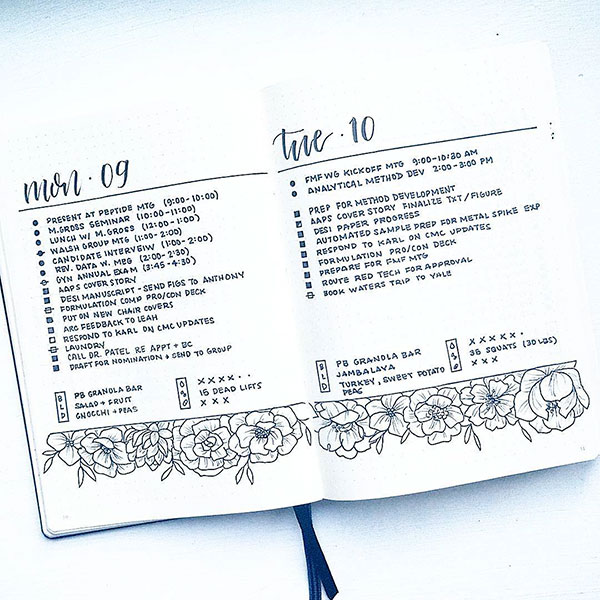 mon · 09
PRESENT AT PEPTIDE MTG (9:00-10:00)
M.GROSS SEMINAR (10:00-11:00)
LUNCH W/ M.GROSS (12:00-1:00)
WALSH GROUP MTG (1:00-2:00)
CANDIDATE INTERVIEW (1:00-2:00)
REV. DATA W. MEG (2:00-2:30)
GYN ANNUAL EXAM (3:45-4:30)
AAPS COVER STORY
DESI MANUSCRIPT - SEND FIGS TO ANTHONY
FORMULATION COMP PRO/CON DECK
PUT ON NEW CHAIR COVERS
ARC FEEDBACK TO LEAH
RESPOND TO KARL ON CMC UPDATES
LAUNDRY
CALL DR. PATEL RE APPT + BC
DRAFT FOR NOMINATION + SEND TO GROUP
B PB GRANOLA BAR
L SALAD + FRUIT
D GNOCCHI + PEAS
X X X X · ·
15 DEAD LIFTS
X X X
tue · 10
FMF WG KICKOFF MTG 9:00-10:30 AM
ANALYTICAL METHOD DEV 2:00-3:00 PM
PREP FOR METHOD DEVELOPMENT
AAPS COVER STORY FINALIZE TXT/FIGURE
DESI PAPER PROGRESS
AUTOMATED SAMPLE PREP FOR METAL SPIKE EXP
RESPOND TO KARL ON CMC UPDATES
FORMULATION PRO/CON DECK
PREPARE FOR FMF MTG
ROUTE RED TECH FOR APPROVAL
BOOK WATERS TRIP TO YALE
B PB GRANOLA BAR
L JAMBALAYA
D TURKEY, SWEET POTATO
PEAS
X X X X X ·
35 SQUATS (30 LBS)
X X X